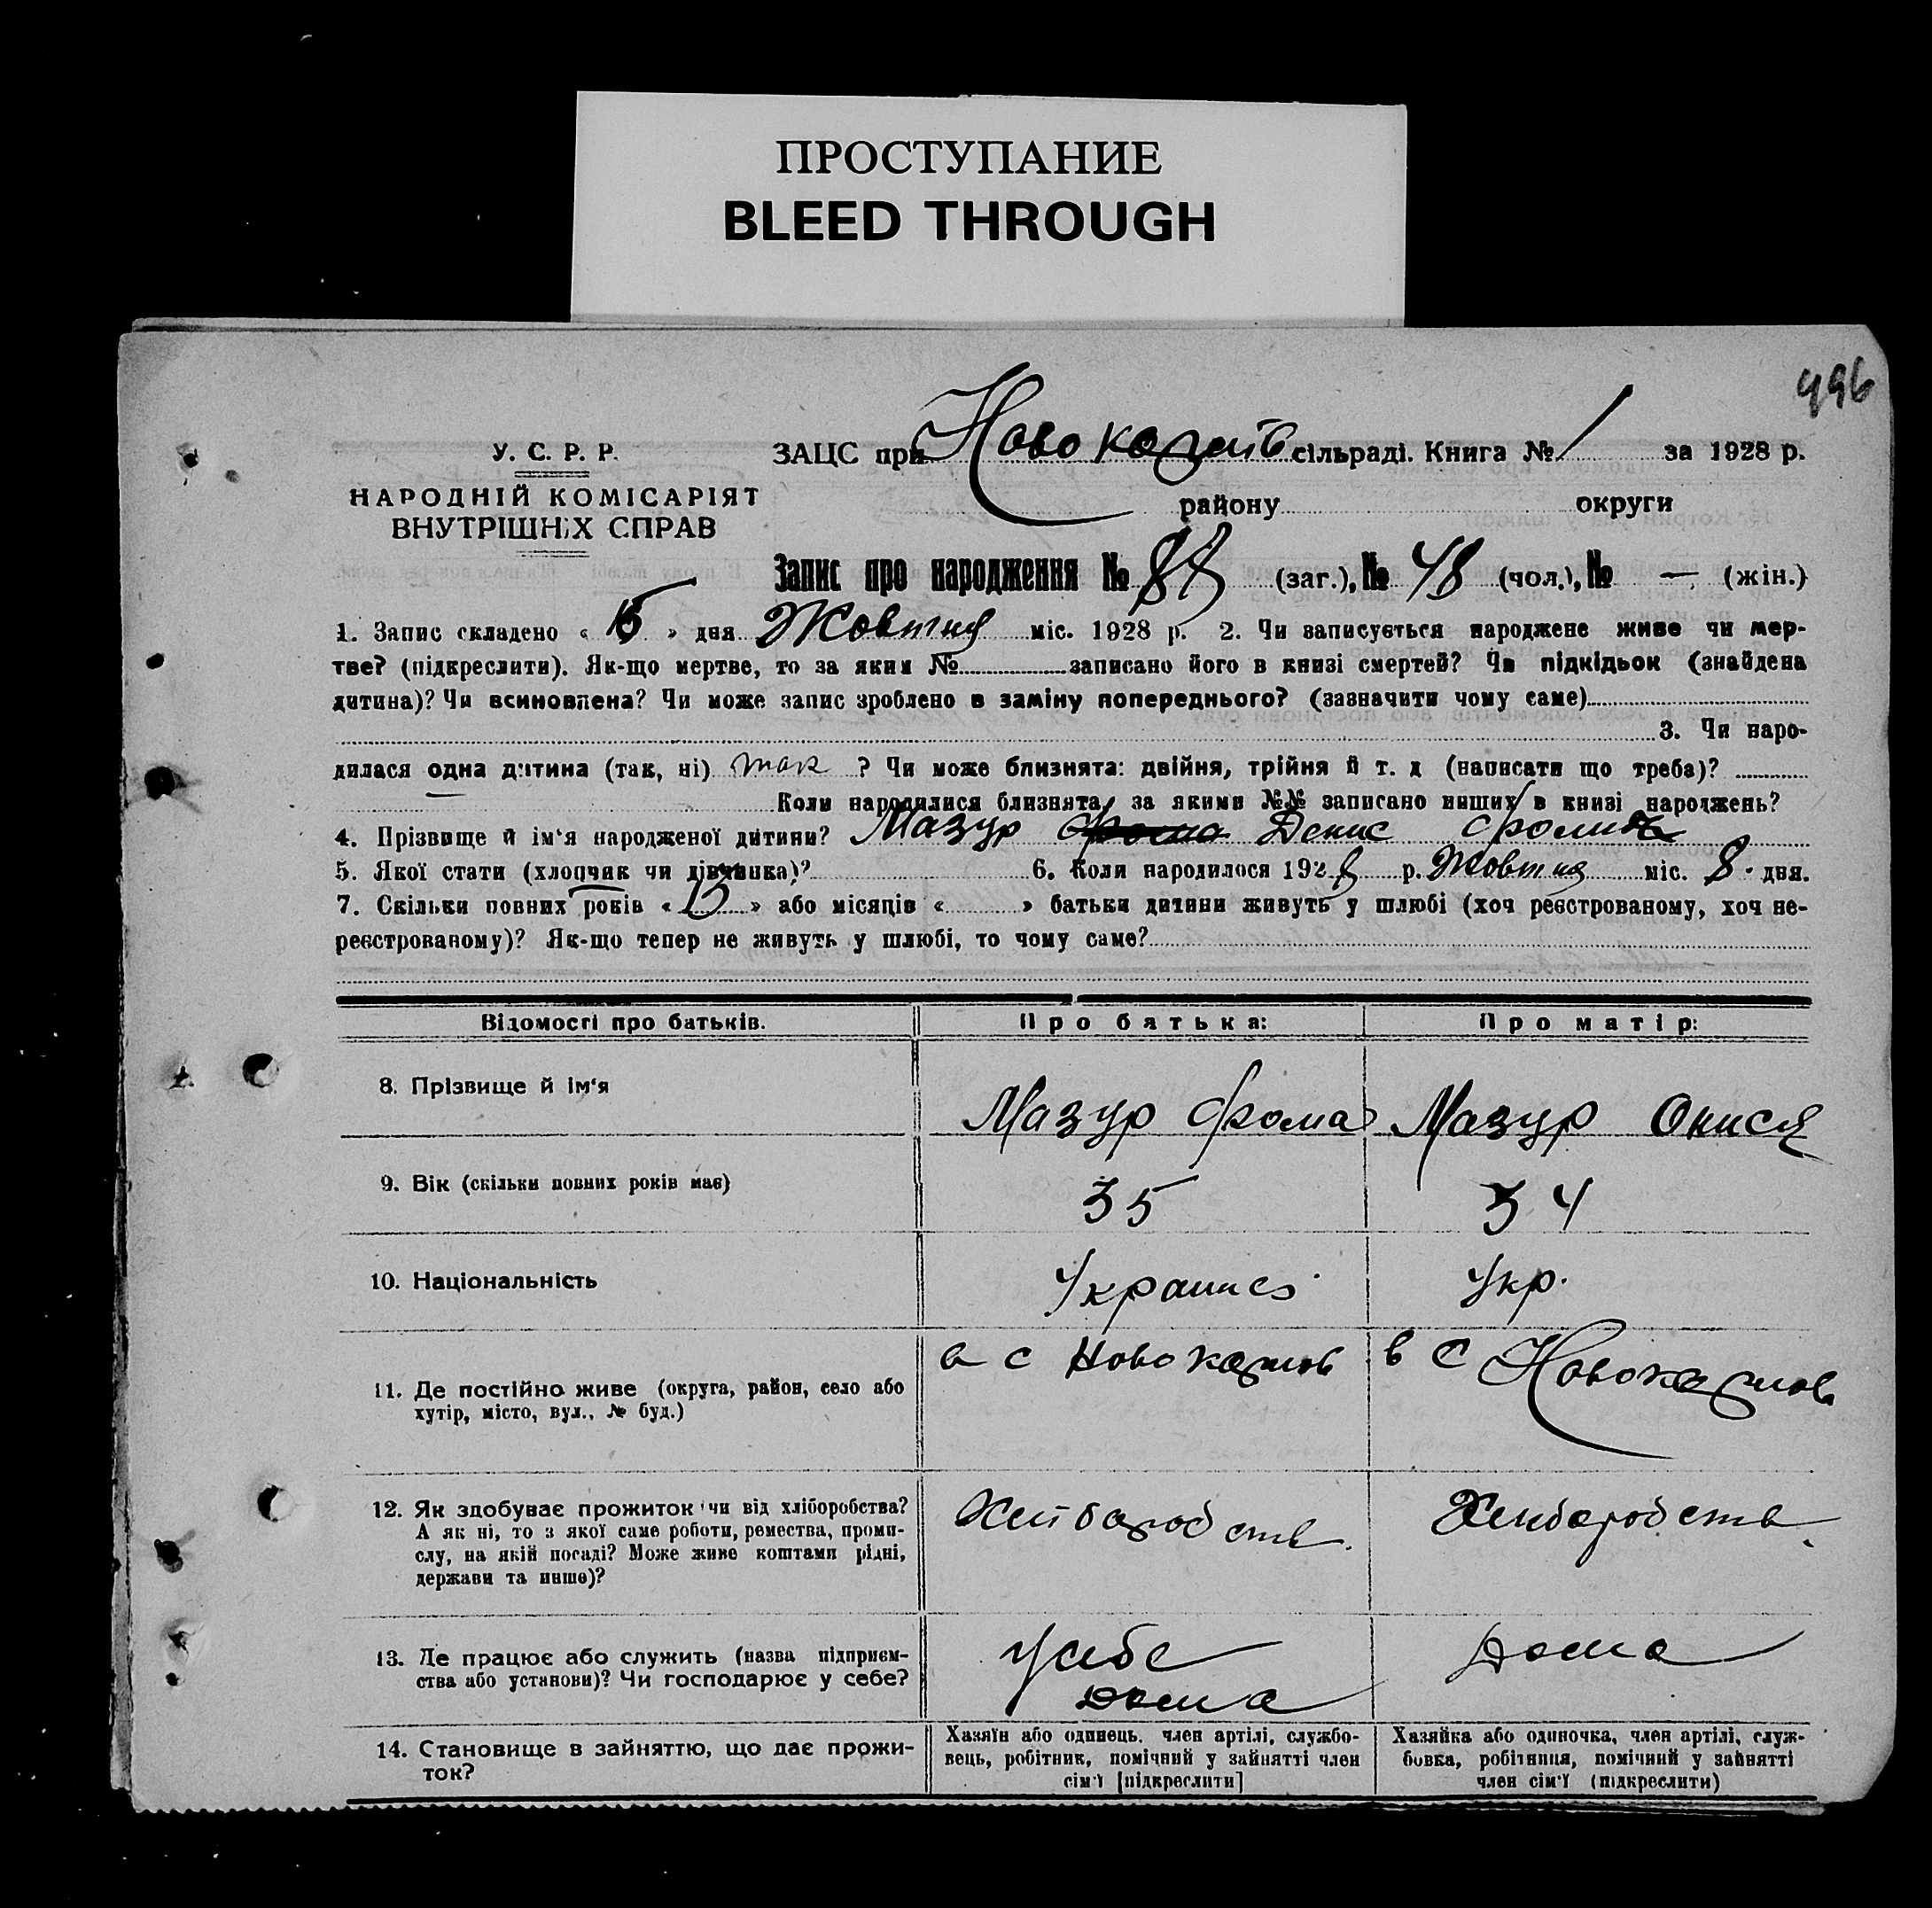 ПРОСТУПАНИЕ
BLEED THROUGH
496
У. С. Р. Р.
НАРОДНІЙ КОМІСАРІЯТ
ВНУТРІШНІХ СПРАВ
ЗАЦС при сільраді. Книга № 1 за 1928 р.
району округи
Запис про народження № 88 (заг.), № 48 (чол.), № — (жін.)
1. Запис складено « 15 » дня Жовтня міс. 1928 р. 2. Чи записується народжене живе чи мер-
тве? (підкреслити). Як-що мертве, то за яким № записано його в книзі смертей? Чи підкідьок (знайдена
дитина)? Чи всиновлена? Чи може запис зроблено в заміну попереднього? (зазначити чому саме)
3. Чи наро-
дилася одна дитина (так, ні) так ? Чи може близнята: двійня, трійня й т. д (написати що треба)?
Коли народилися близнята, за якими №№ записано инших в книзі народжень?
4. Прізвище й ім'я народженої дитини? Мазур Фома Денис
5. Якої стати (хлопчик чи дівчинка)? 6. Коли народилося 1928 р. Жовтня міс. 8. дня.
7. Скільки повних років « 13 » або місяців « » батьки дитини живуть у шлюбі (хоч реєстрованому, хоч не-
реєстрованому)? Як-що тепер не живуть у шлюбі, то чому саме?
Відомості про батьків. Про батька: Про матір:
8. Прізвище й ім'я Мазур Фома Мазур Онися
9. Вік (скільки повних років має) 35 34
10. Національність Украинез Укр.
11. Де постійно живе (округа, район, село або
хутір, місто, вул., № буд.)
12. Як здобуває прожиток чи від хліборобства?
А як ні, то з якої саме роботи, ремества, проми-
слу, на якій посаді? Може живе коштами рідні,
держави та инше)?
13. Де працює або служить (назва підприєм-
ства або установи)? Чи господарює у себе?
Усебе
Дома
Дома
14. Становище в зайняттю, що дає прожи-
ток?
Хазяїн або одинець, член артілі, службо-
вець, робітник, помічний у зайнятті член
сім'ї [підкреслити]
Хазяйка або одиночка, член артілі, служ-
бовка, робітниця, помічний у зайнятті
член сім'ї (підкреслити)